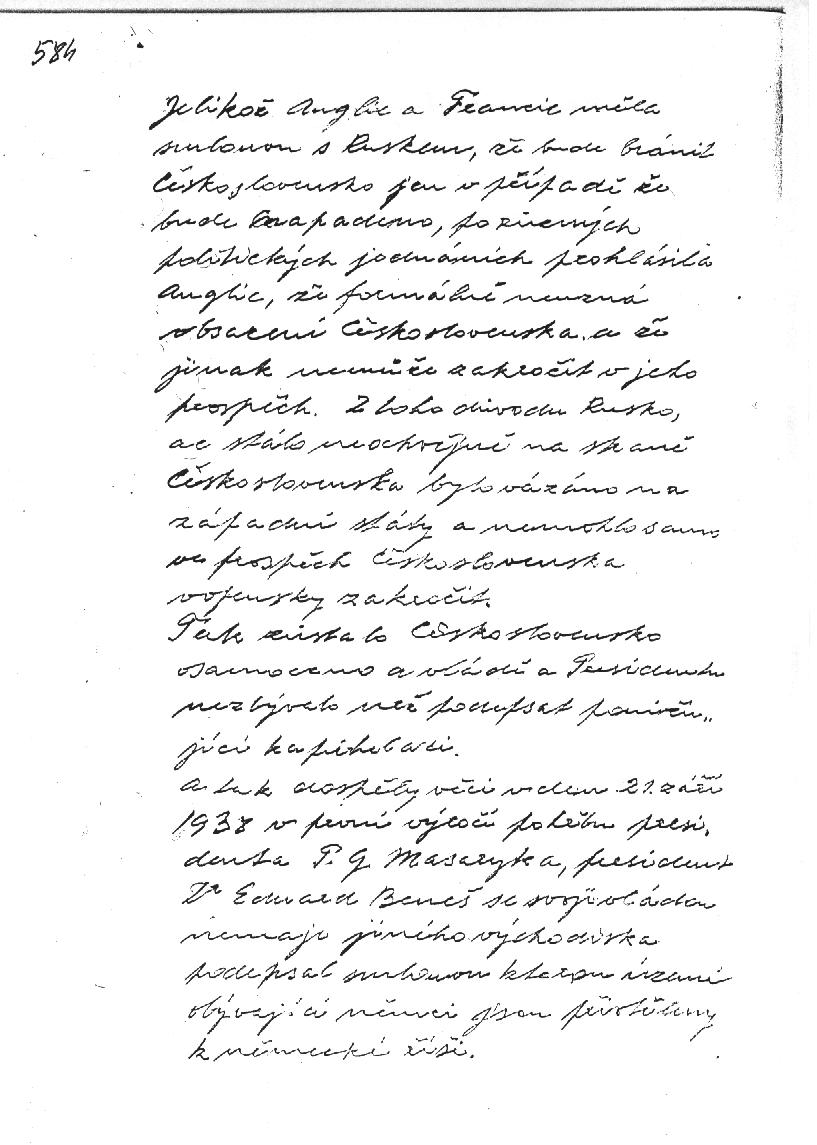 584
Jelikož Anglie a Francie měla
smlouvu s Ruskem, že bude bránit
Československo jen v případě že
bude napadeno, po různých
politických jednáních prohlásila
Anglie, že formálně neuzná
obsazení Československa a že
jinak nemůže zakročit v jeho
prospěch. Z toho důvodu Rusko,
ač stálo neochvějně na straně
Československa bylo vázáno na
západní státy a nemohlo samo
ve prospěch Československa
vojensky zakročit.
Tak zůstalo Československo
osamoceno a vládě a Presidentu
nezbývalo než podepsat poniču„
jící kapitulaci.
A tak dospěly věci v den 21. září
1938 v první výročí pohřbu presi„
denta T. G. Masaryka, president
Dr Eduard Beneš se svojí vládou
nemaje jiného východiska
podepsal smlouvu kterou území
obývající němci jsou přivtěleny
k německé říši.